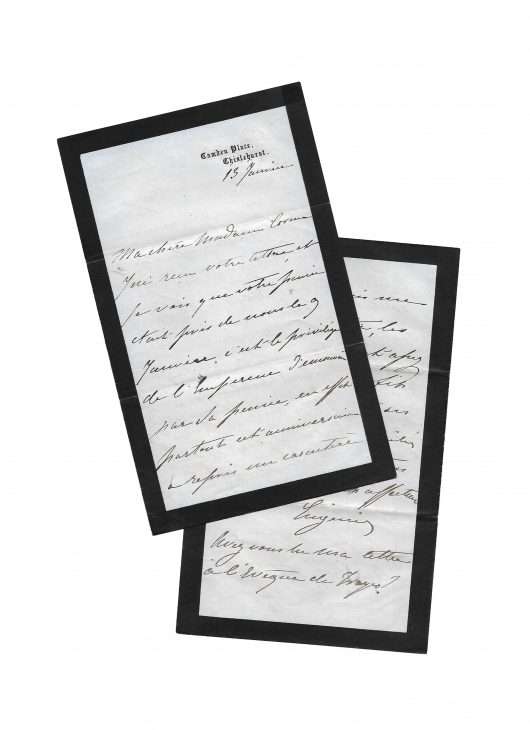 Camden Place,
Chislehurst.
13 Janvier
Ma chère Madame
J'ai reçu votre lettre, et
je vois que votre pensée
était près de nous le 9
Janvier, c'est le privilège
de l'Empereur d'émouvoir
par sa pensée, en effet
partout cet anniversaire
a repris un caractère
me
les
Eugénie
Avez vous lu ma lettre
à l'Evêque de Troyes?